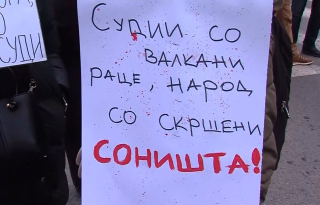 СУДИ
Судии со
валкани
раце, народ
со скршени
СОНИШТА!